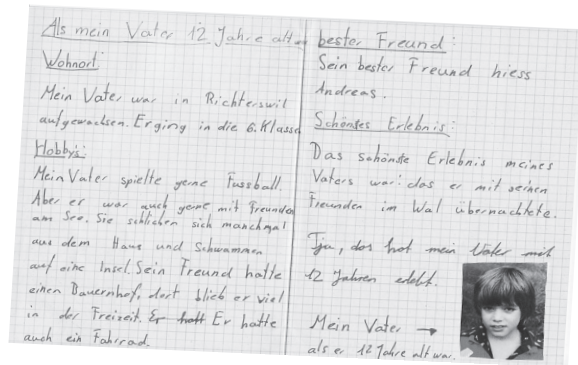 Als mein Vater 12 Jahre alt
Wohnort:
Mein Vater war in Richterswil
aufgewachsen. Er ging in die 6. Klasse
Hobby's:
Mein Vater spielte gerne Fussball.
Aber er war auch gerne mit Freunden
am See. Sie schlichen sich manchmal
aus dem Haus und Schwammen
auf eine Insel. Sein Freund hatte
einen Bauernhof, dort blieb er viel
in der Freizeit. Er hatt Er hatte
auch ein Fahrrad.
bester Freund:
Sein bester Freund hiess
Andreas.
Schönstes Erlebnis:
Das schönste Erlebnis meines
Vaters war: das er mit seinen
Freunden im Wal übernachtete.
Tja, das hat mein Vater mit
12 Jahren erlebt.
Mein Vater →
als er 12 Jahre alt war.